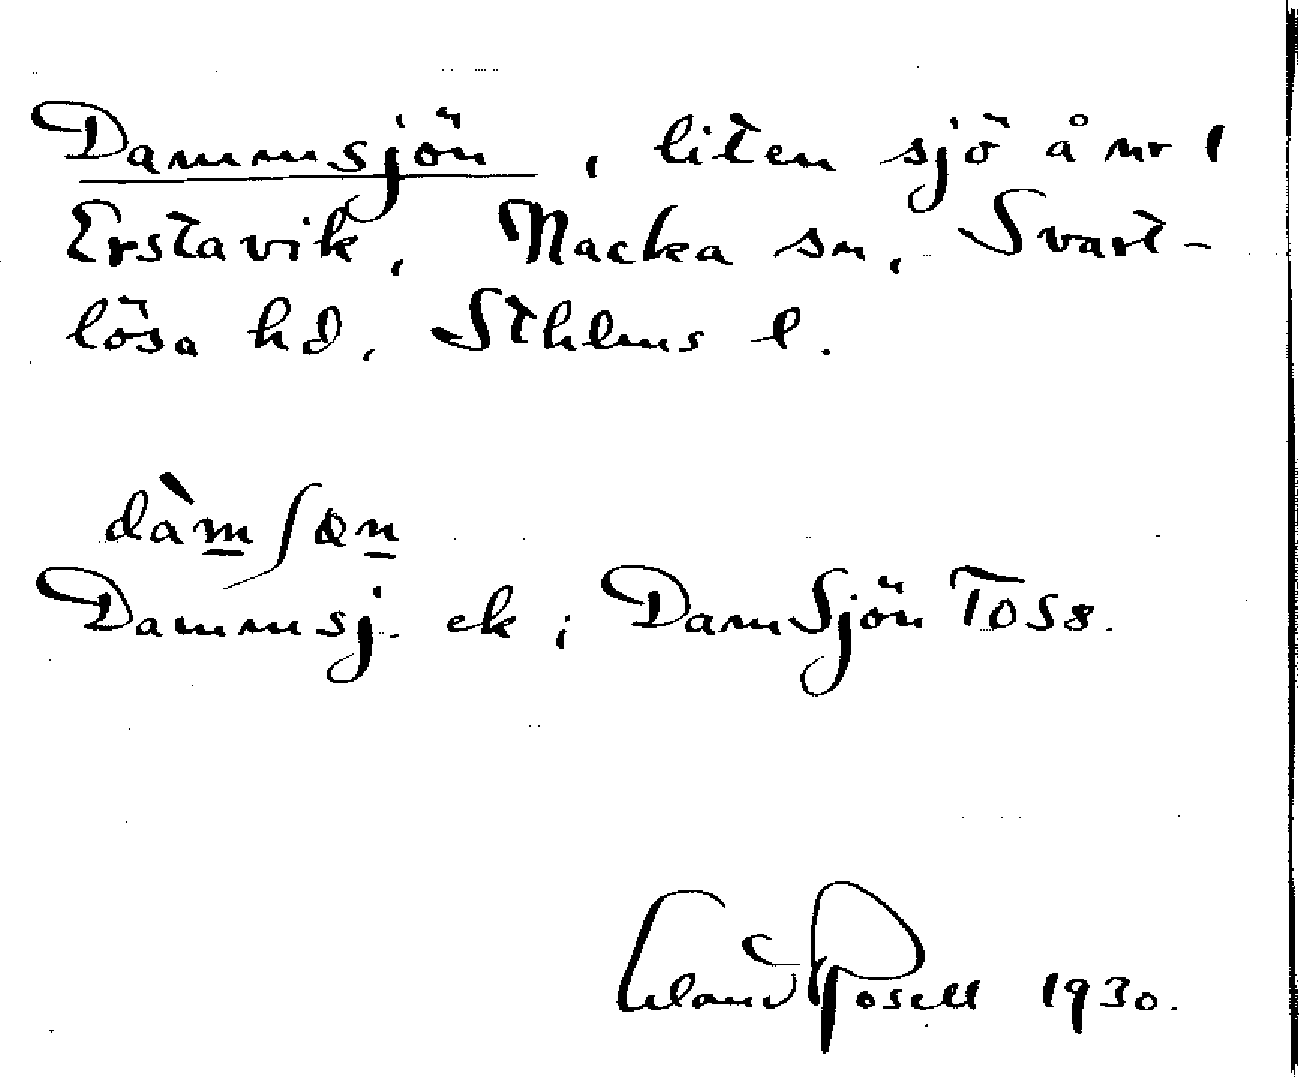 Dammsjön, liten sjö å nr 1
Erstavik, Nacka sn, Svart-
lösa hd, Sthlms l.
dàmʃɷn
Dammsj. ek; DamSjön TOS8.
Erland Rosell 1930.